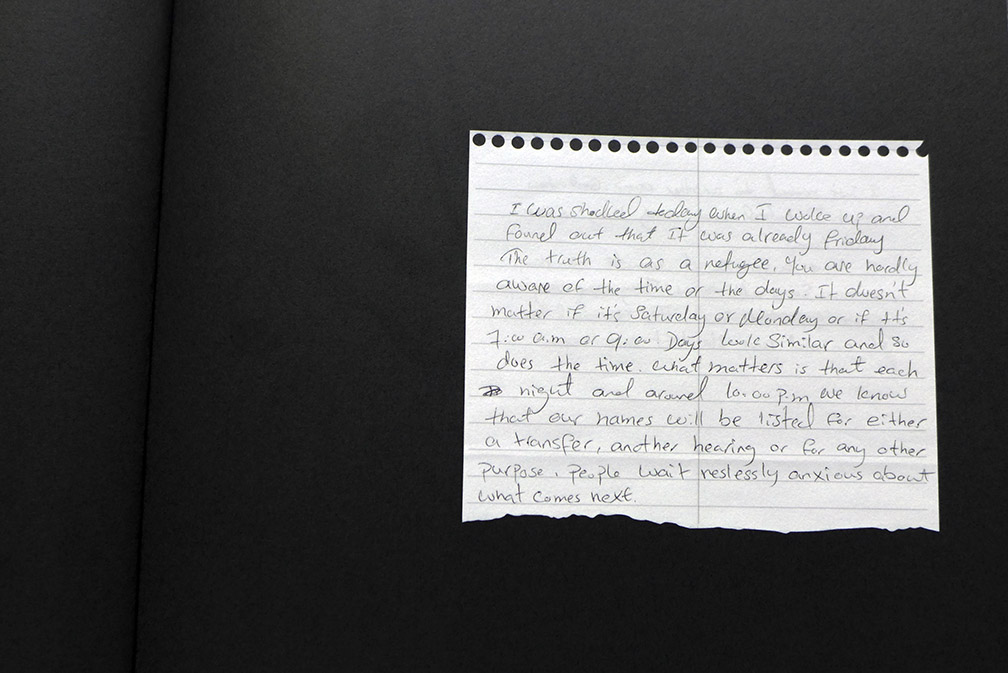 I was shocked today when I woke up and
found out that it was already friday
The truth is as a refugee, you are hardly
aware of the time or the days. It doesn't
matter if it's Saturday or Monday or if it's
7:00 a.m or 9:00 Days look Similar and so
does the time. what matters is that each
night and around 10.00 p.m we know
that our names will be listed for either
a transfer, another hearing or for any other
purpose. people wait reslessly anxious about
what comes next.